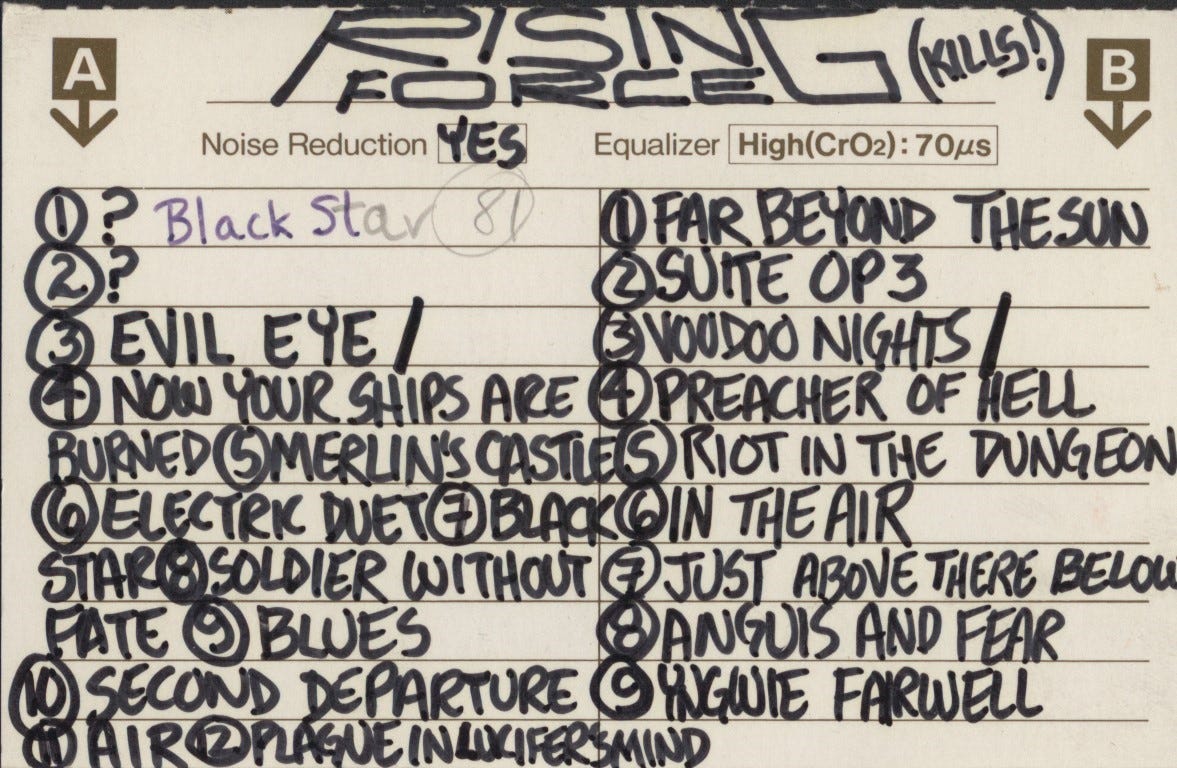 RISING
FORCE (KILLS!)
A
B
Noise Reduction YES Equalizer High(CrO2): 70µs
① ? Black Star 81
② ?
③ EVIL EYE /
④ NOW YOUR SHIPS ARE
BURNED ⑤ MERLIN'S CASTLE
⑥ ELECTRIC DUET ⑦ BLACK
STAR ⑧ SOLDIER WITHOUT
FATE ⑨ BLUES
⑩ SECOND DEPARTURE
⑪ AIR ⑫ PLAGUE IN LUCIFERS MIND
① FAR BEYOND THE SUN
② SUITE OP 3
③ VOODOO NIGHTS /
④ PREACHER OF HELL
⑤ RIOT IN THE DUNGEON
⑥ IN THE AIR
⑦ JUST ABOVE THERE BELOW
⑧ ANGUIS AND FEAR
⑨ YNGWIE FAIRWELL